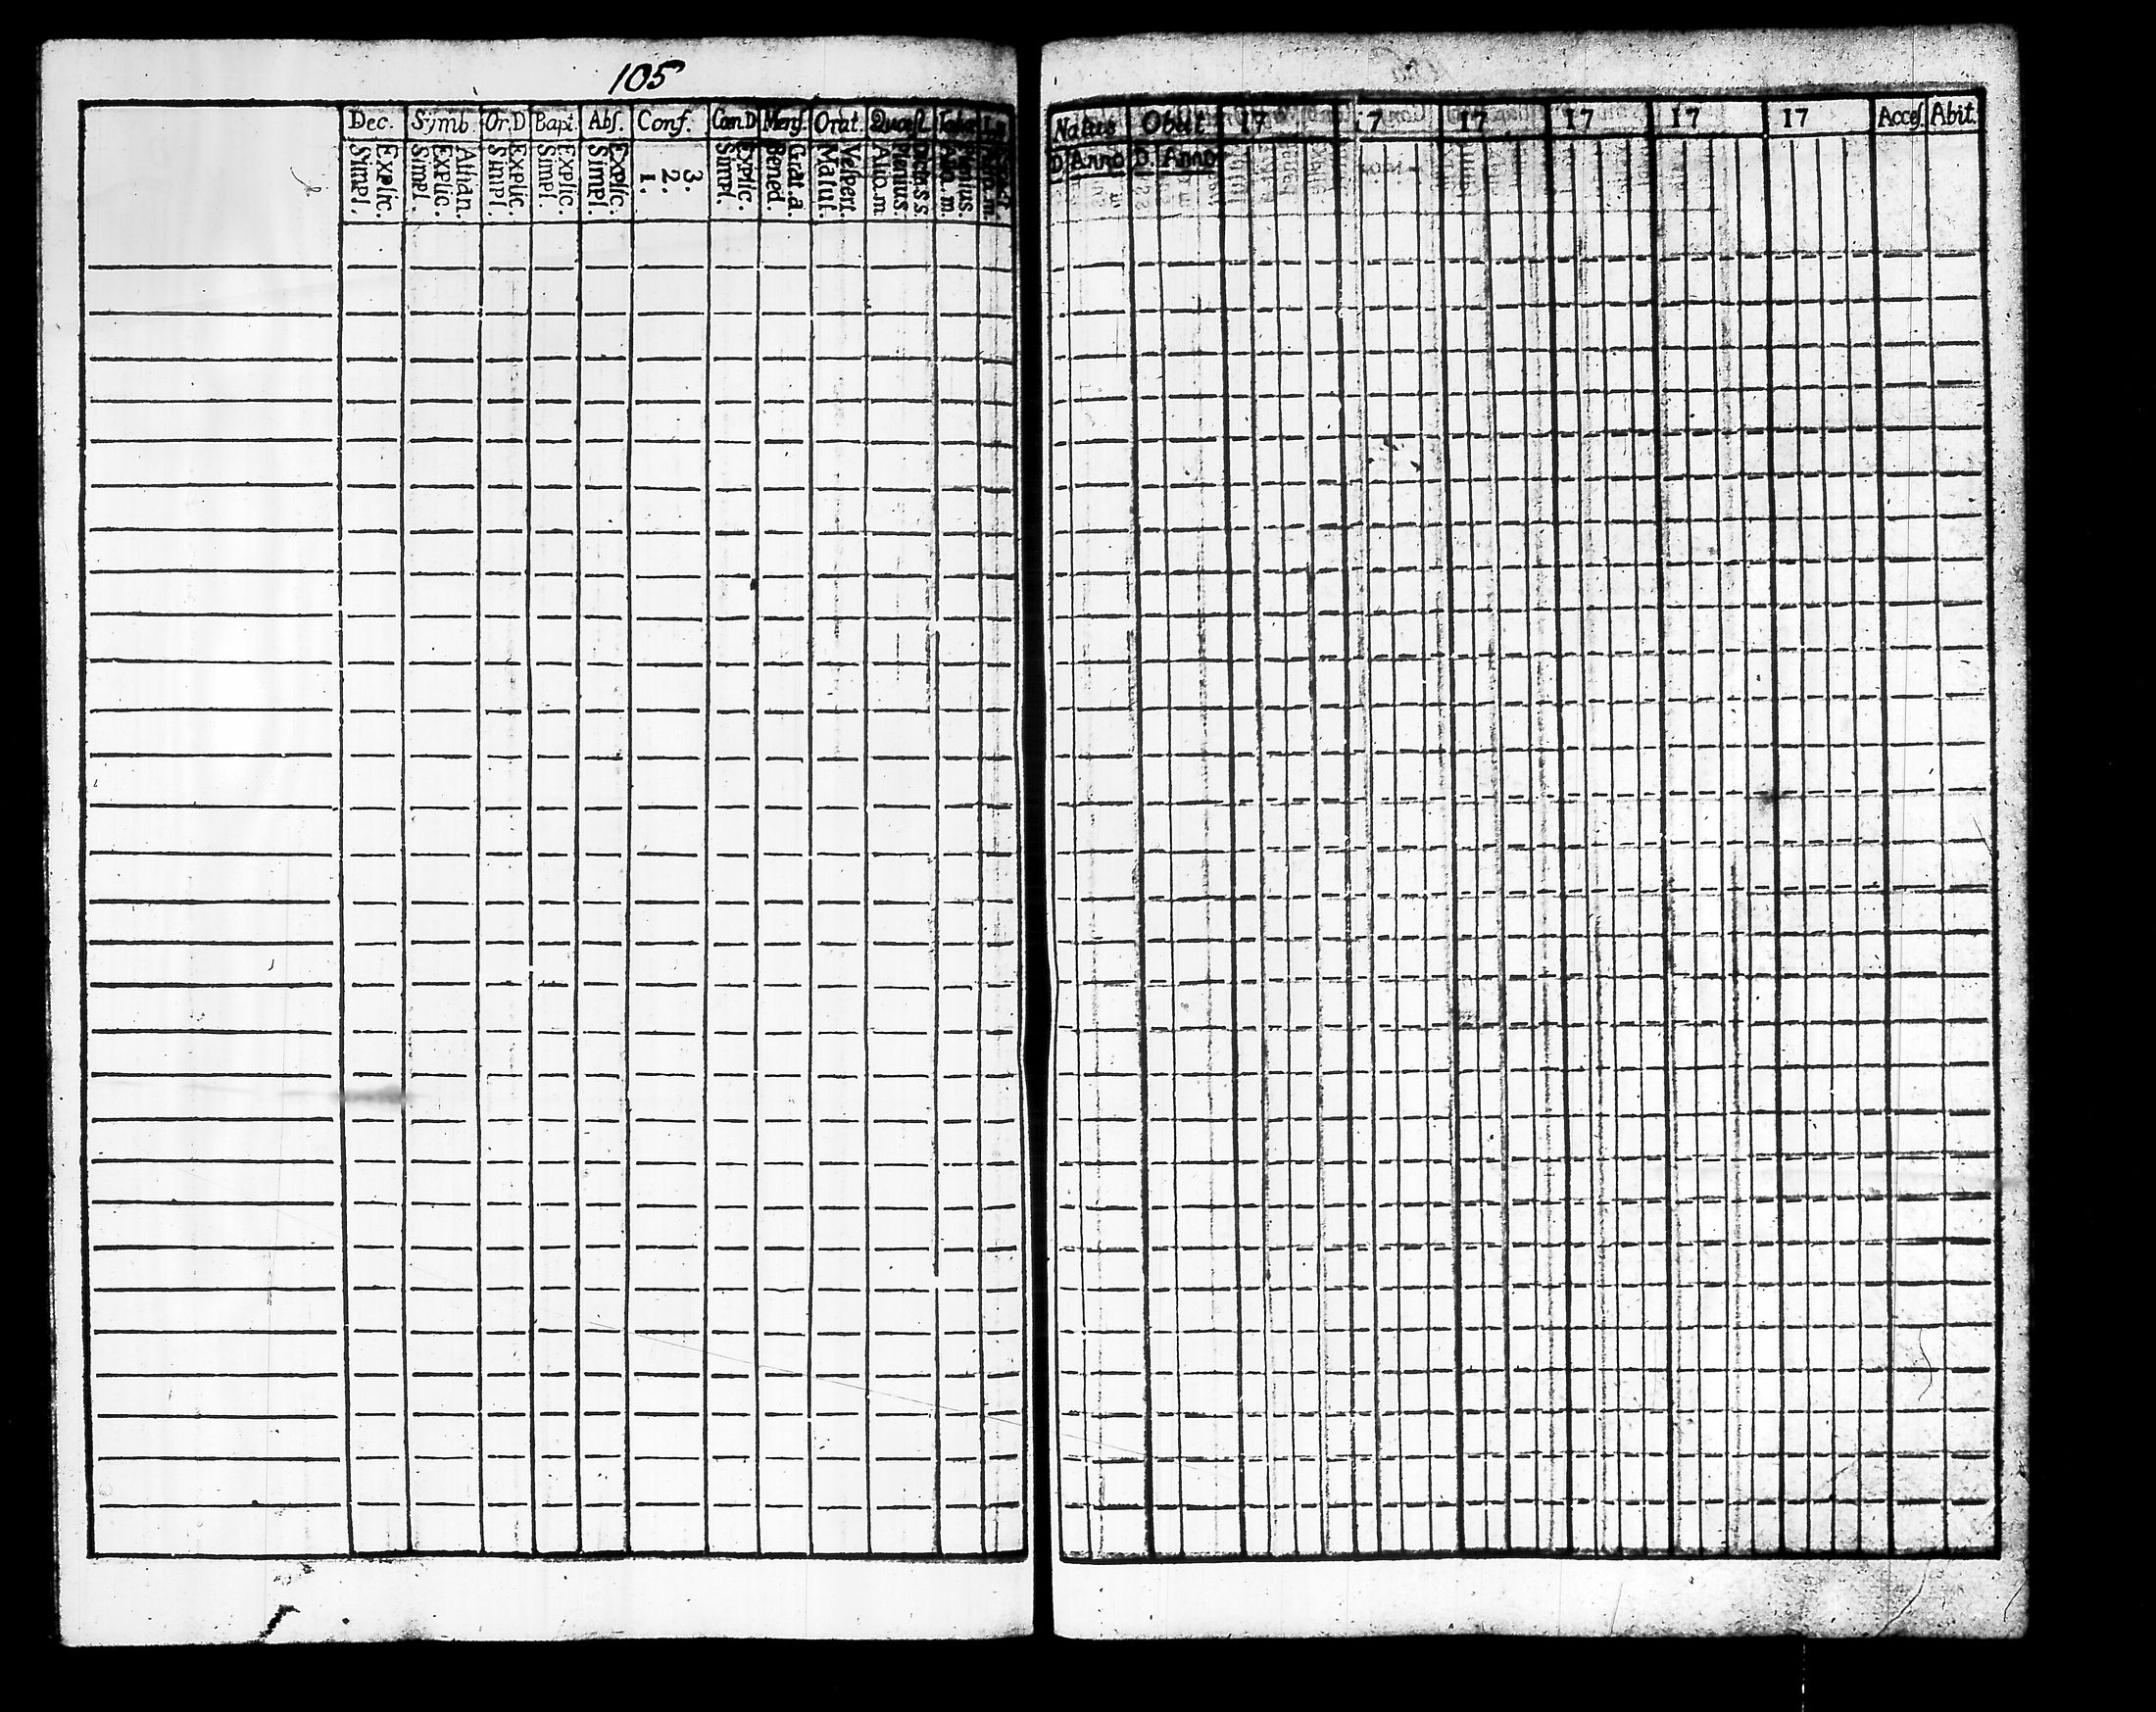 105
Dec. Symb. Or.D Bapt. Abſ. Conf. Com.D Menſ. Orat. Quæſt.
Explic. Simpl.
Athan. Explic. Simpl.
Explic. Simpl.
Explic. Simpl.
Explic. Simpl.
3. 2. 1.
Explic. Simpl.
Grat.a. Bened.
Veſperi. Matut.
Dicta.S.S. Plenius. Aliq.m.
Plenius. Aliq.m.
Natus Obiit 17 17 17 17 17 17 Acceſ. Abit.
D Anno D. Anno